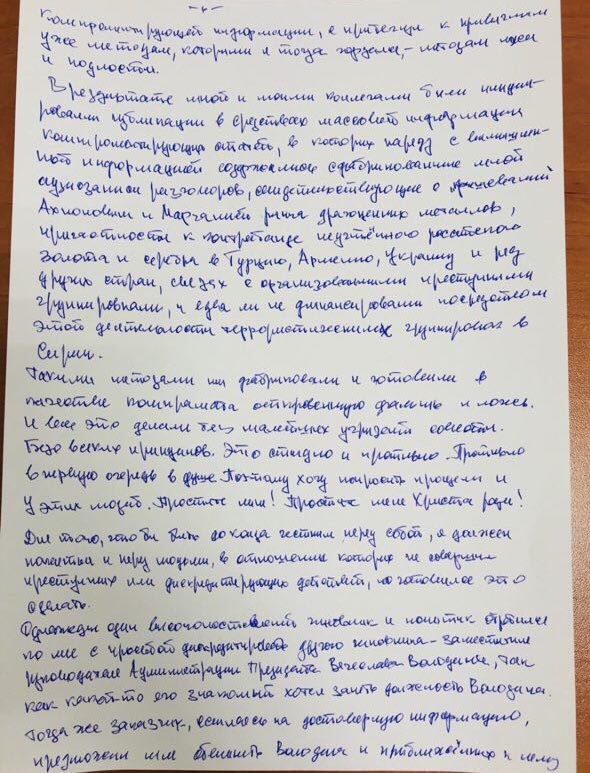 -4-
компрометирующей информации, я прибегнул к привычным
уже методам, которыми я тогда гордился, - методам лжи
и подлости.
В результате мной и моими коллегами были иниции-
рованы публикации в средствах массовой информации
компрометирующих статей, в которых наряду с вымышлен-
ной информацией содержались сфабрикованные мной
аудиозаписи разговоров, свидетельствующие о
и рынка драгоценных металлов,
причастности к контрабанде неучтённого российского
золота и серебра в Турцию, Армению, Украину и ряд
других стран, связях с организованными преступными
группировками, и едва ли не финансировании посредством
этой деятельности террористических группировок в
Сирии.
Такими методами мы фабриковали и готовили в
качестве компромата откровенную фальшь и ложь.
И все это делали без малейших угрызений совести.
Безо всяких принципов. Это стыдно и противно. Противно
в первую очередь в душе. Поэтому хочу попросить прощения и
у этих людей. Простите меня! Простите меня Христа ради!
Для того, чтобы быть до конца честным перед собой, я должен
покаяться и перед людьми, в отношении которых не совершил
преступных или дискредитирующих действий, но готовился это
сделать.
Однажды один высокопоставленный чиновник и политик обратился
ко мне с просьбой дискредитировать другого чиновника - заместителя
руководителя Администрации Президента Вячеслава Володина, так
как какой-то его знакомый хотел занять должность Володина.
Тогда же заказчик, ссылаясь на достоверную информацию,
предложил мне обвинить Володина и приближённых к нему